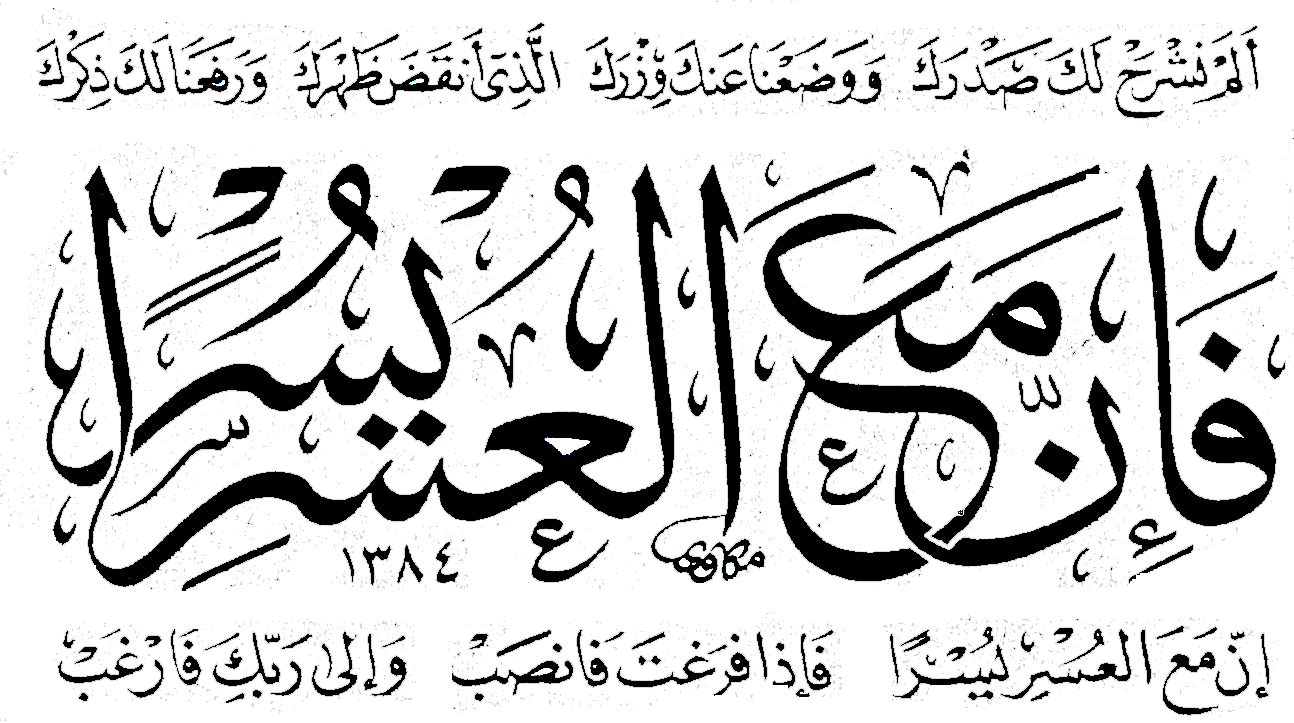 أَلَمْ نَشْرَحْ لَكَ صَدْرَكَ وَوَضَعْنَا عَنكَ وِزْرَكَ الَّذِي أَنقَضَ ظَهْرَكَ وَرَفَعْنَا لَكَ ذِكْرَكَ
فَإِنَّ مَعَ الْعُسْرِ يُسْرًا
١٣٨٤
إِنَّ مَعَ الْعُسْرِ يُسْرًا فَإِذَا فَرَغْتَ فَانصَبْ وَإِلَى رَبِّكَ فَارْغَبْ